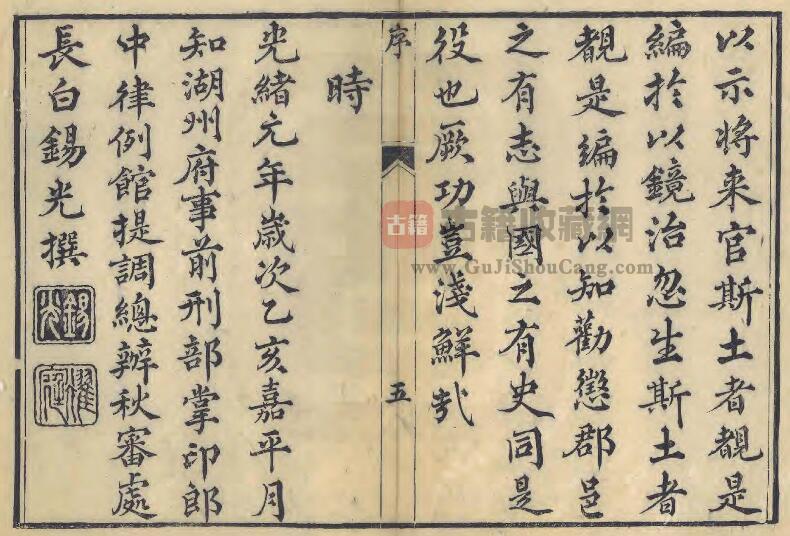 以示將来官斯土者覩是
編於以鏡治忽生斯土者
覩是編於以知勸懲郡邑
之有志與國之有史同是
役也厥功豈淺鮮哉
序
五
時
光緒元年嵗次乙亥嘉平月
知湖州府事前刑部掌印郎
中律例館提調總辦秋審處
長白錫光撰
錫光
古籍
古籍收藏網
www.GuJiShouCang.com